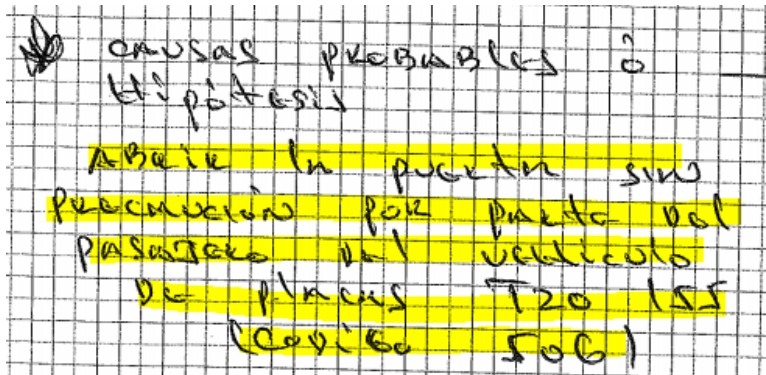 CAUSAS PROBABLES ó
Hipótesis
ABRIR la puerta sin
PRECAUCIÓN POR PARTE Del
PASAJERO Del Vehiculo
De placas T20 155
(CODIGO 506)